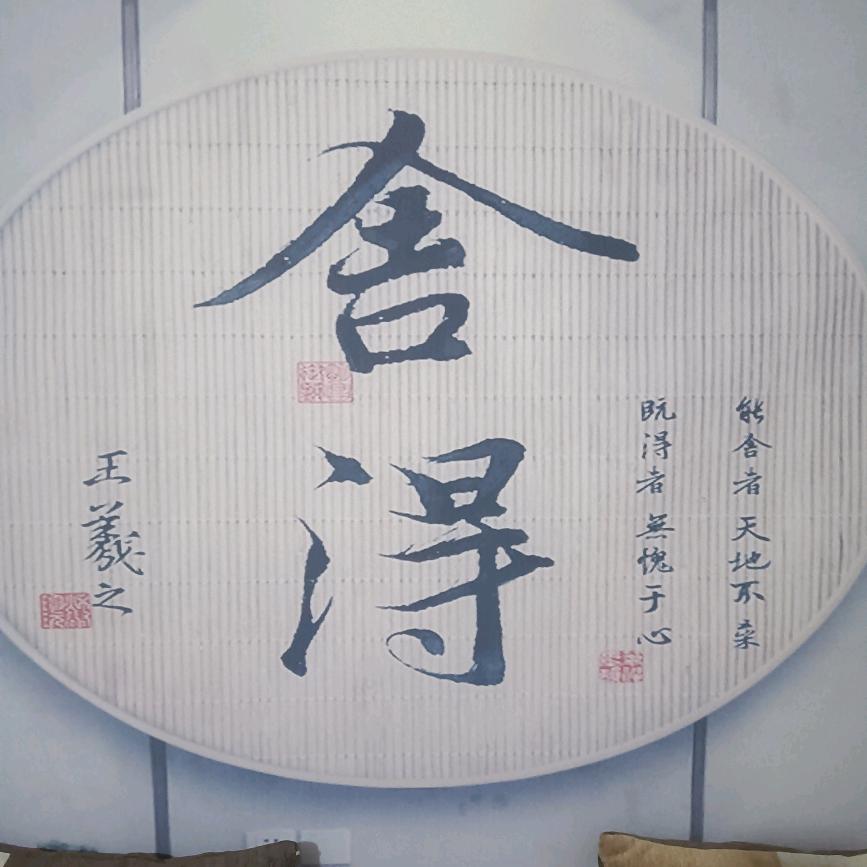 能舍者 天地不
既得者 無愧于心
舍
得
王羲之